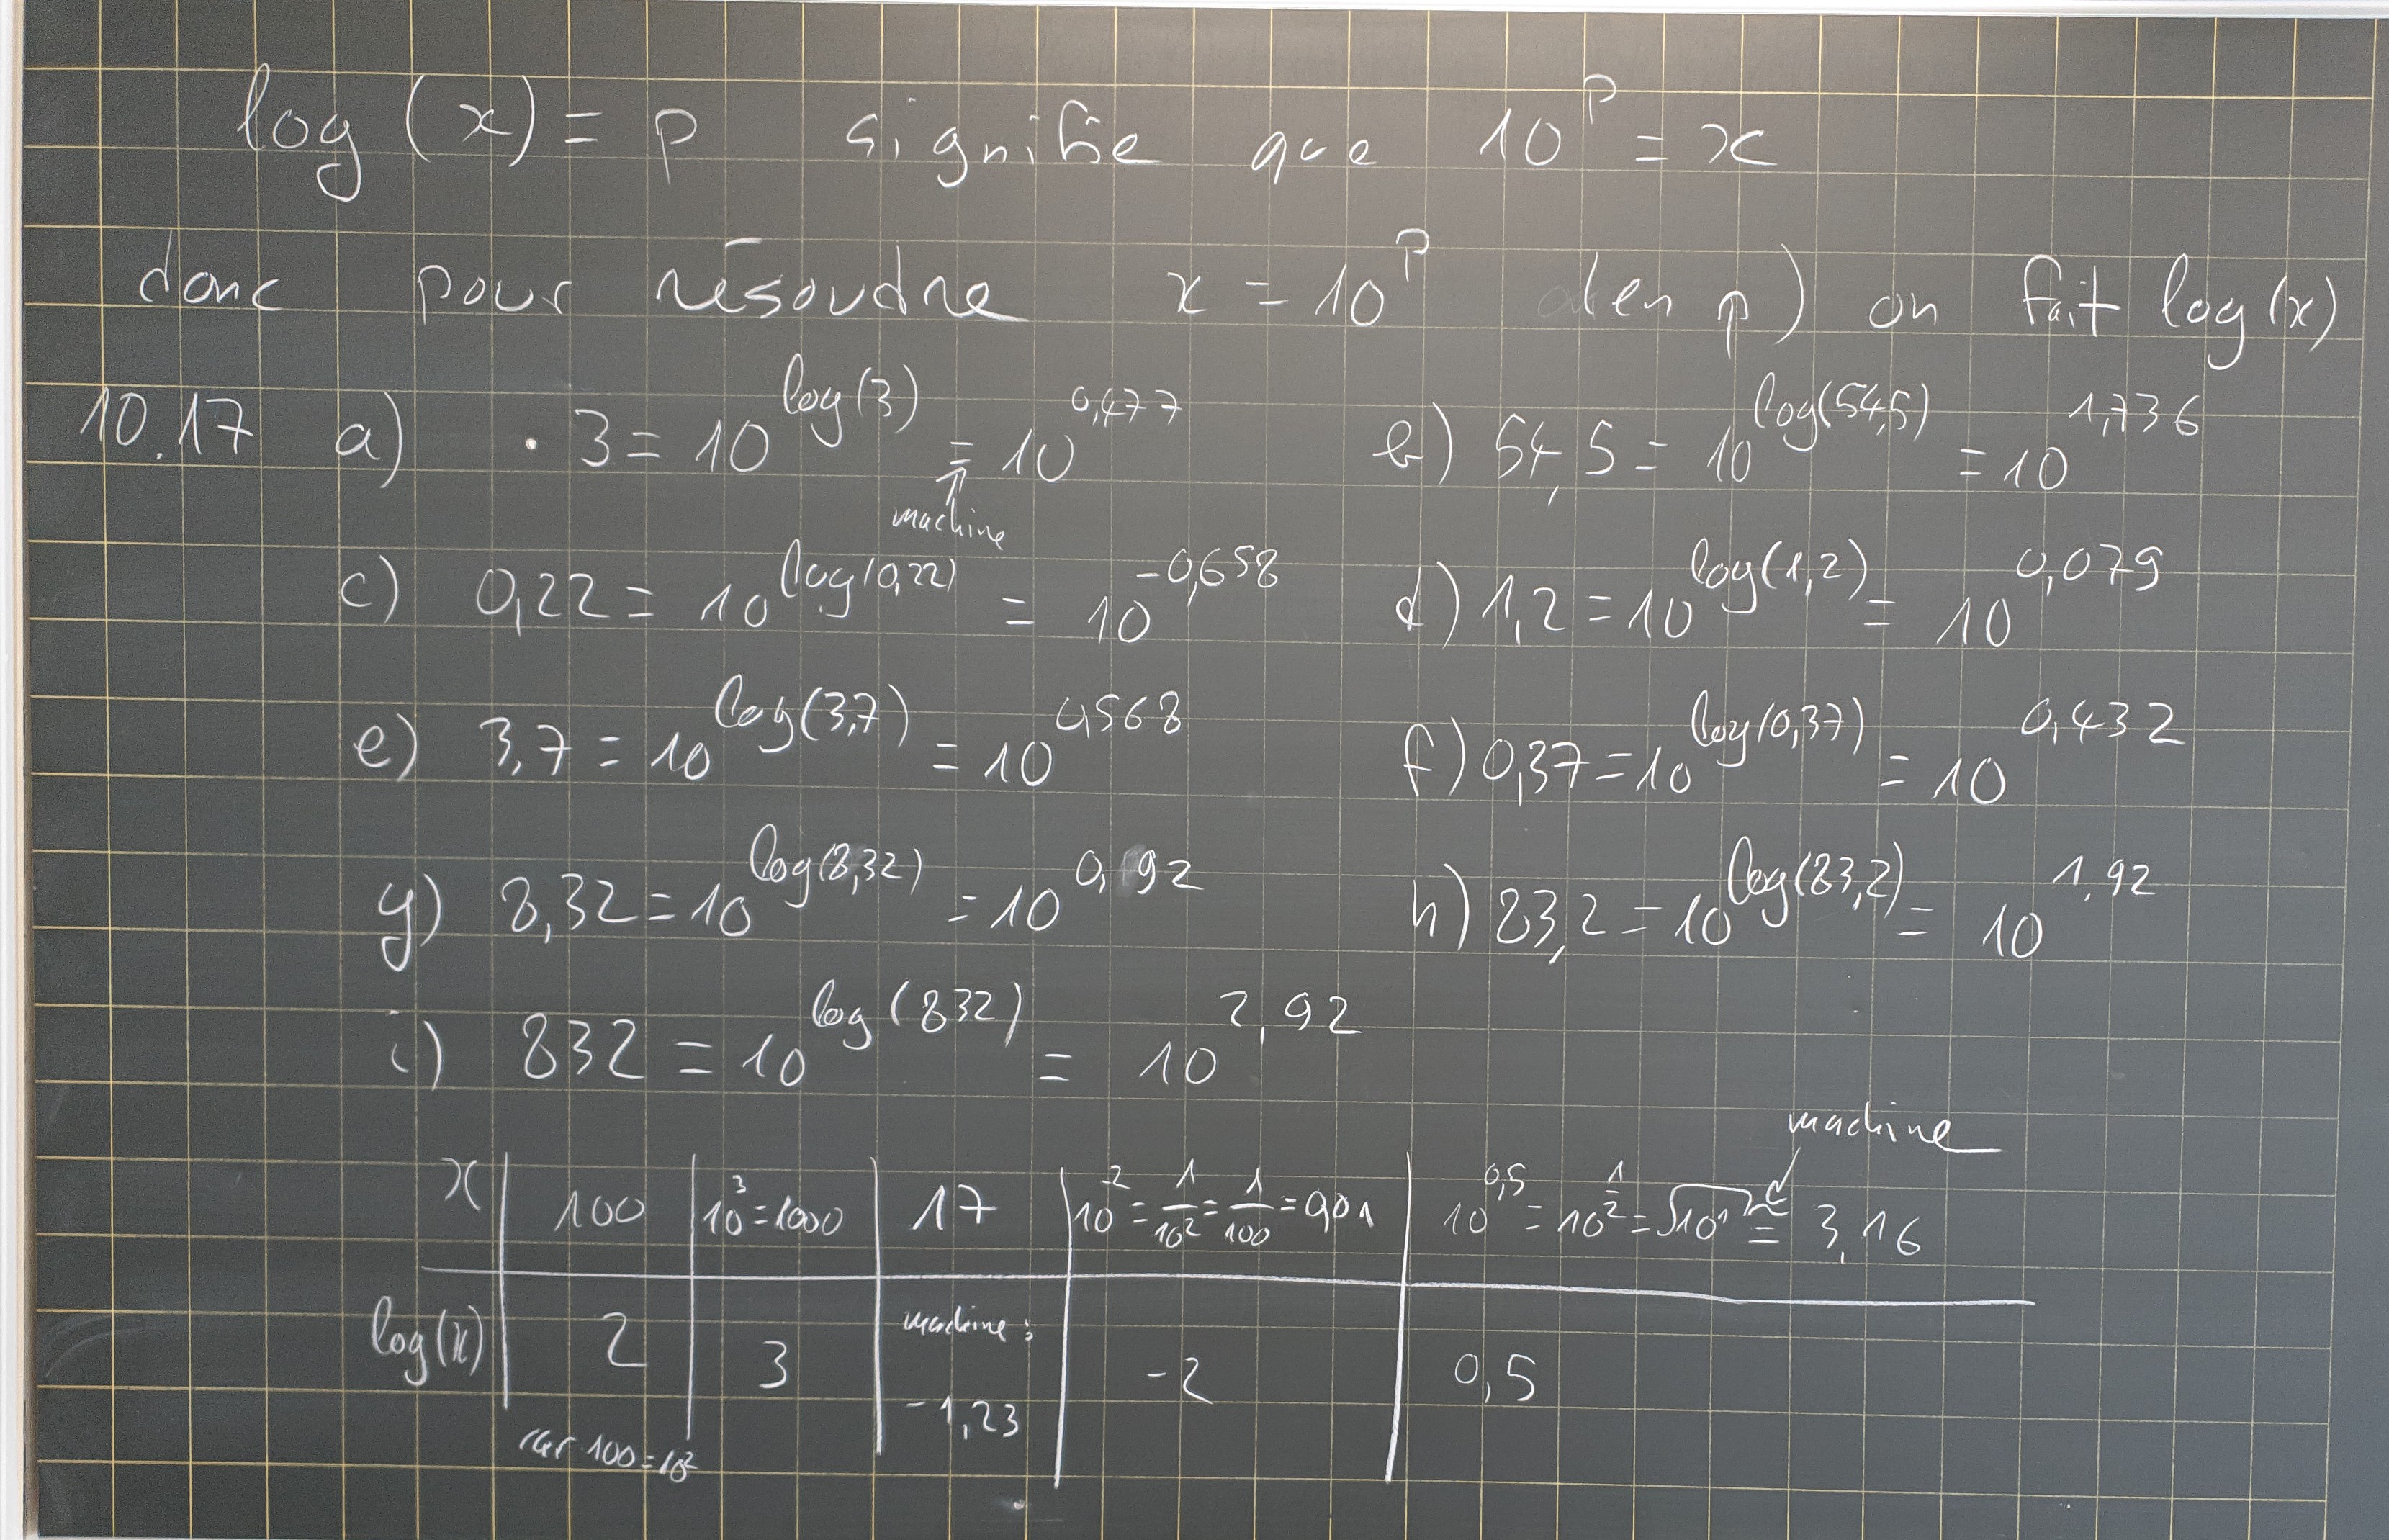 log(x) = p signifie que 10^p = x
donc pour résoudre x = 10^p (en p) on fait log(x)
10.17 a) · 3 = 10^log(3) = 10^0,477 b) 54,5 = 10^log(54,5) = 10^1,736
⇑
machine
c) 0,22 = 10^log(0,22) = 10^-0,658 d) 1,2 = 10^log(1,2) = 10^0,079
e) 3,7 = 10^log(3,7) = 10^0,568 f) 0,37 = 10^log(0,37) = 10^0,432
g) 8,32 = 10^log(8,32) = 10^0,92 h) 83,2 = 10^log(83,2) = 10^1,92
i) 832 = 10^log(832) = 10^2,92
machine
x | 100 | 10^3 = 1000 | 17 | 10^-2 = 1/10^2 = 1/100 = 0,01 | 10^0,5 = 10^1/2 = √10^1 = 3,16
log(x) | 2 | 3 | machine : -1,23 | -2 | 0,5
car 100 = 10^2